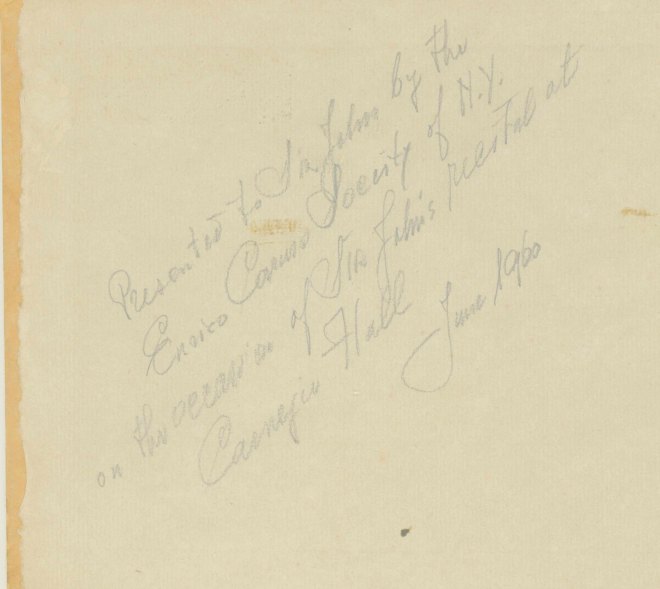 Presented to Sir John by the
Enrico Caruso Society of N.Y.
on the occasion of Sir John's recital at
Carnegie Hall
June 1960